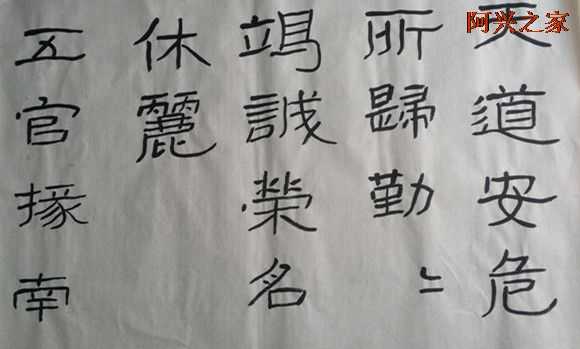 阿兴之家
天道安危
所歸勤〻
竭誠榮名
休麗
五官掾南